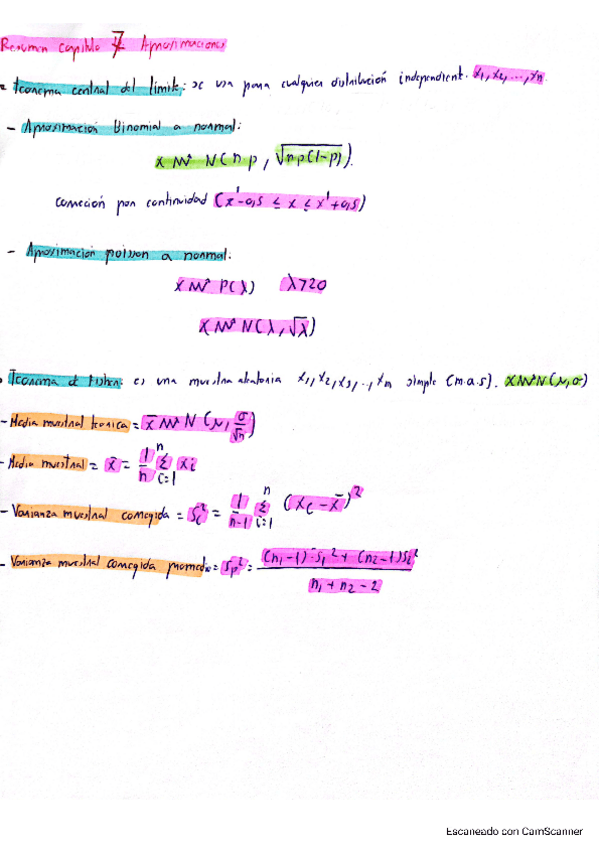 Resumen capítulo 7 Aproximaciones
Teorema central del límite: se usa para cualquier distribución independient. x₁, x₂, ..., xₙ
- Aproximación Binomial a normal:
x ~ N(np, √np(1-p)).
corrección por continuidad (x'-0,5 ≤ x ≤ x'+0,5)
- Aproximación poisson a normal:
x ~ P(λ) λ>20
x ~ N(λ, √λ)
Teorema d Fisher: es una muestra aleatoria x₁, x₂, x₃, .., xₙ simple (m.a.s). x ~ N(μ, σ)
- Media muestral teorica = x̄ ~ N(μ, σ/√n)
- Media muestral = x̄ = 1/n Σ i=1 n xi
- Varianza muestral corregida = Sc² = 1/n-1 Σ i=1 n (xi - x̄)²
- Varianza muestral corregida promedio = Sp² = (n₁-1)·S₁² + (n₂-1)S₂² / n₁ + n₂ - 2
Escaneado con CamScanner